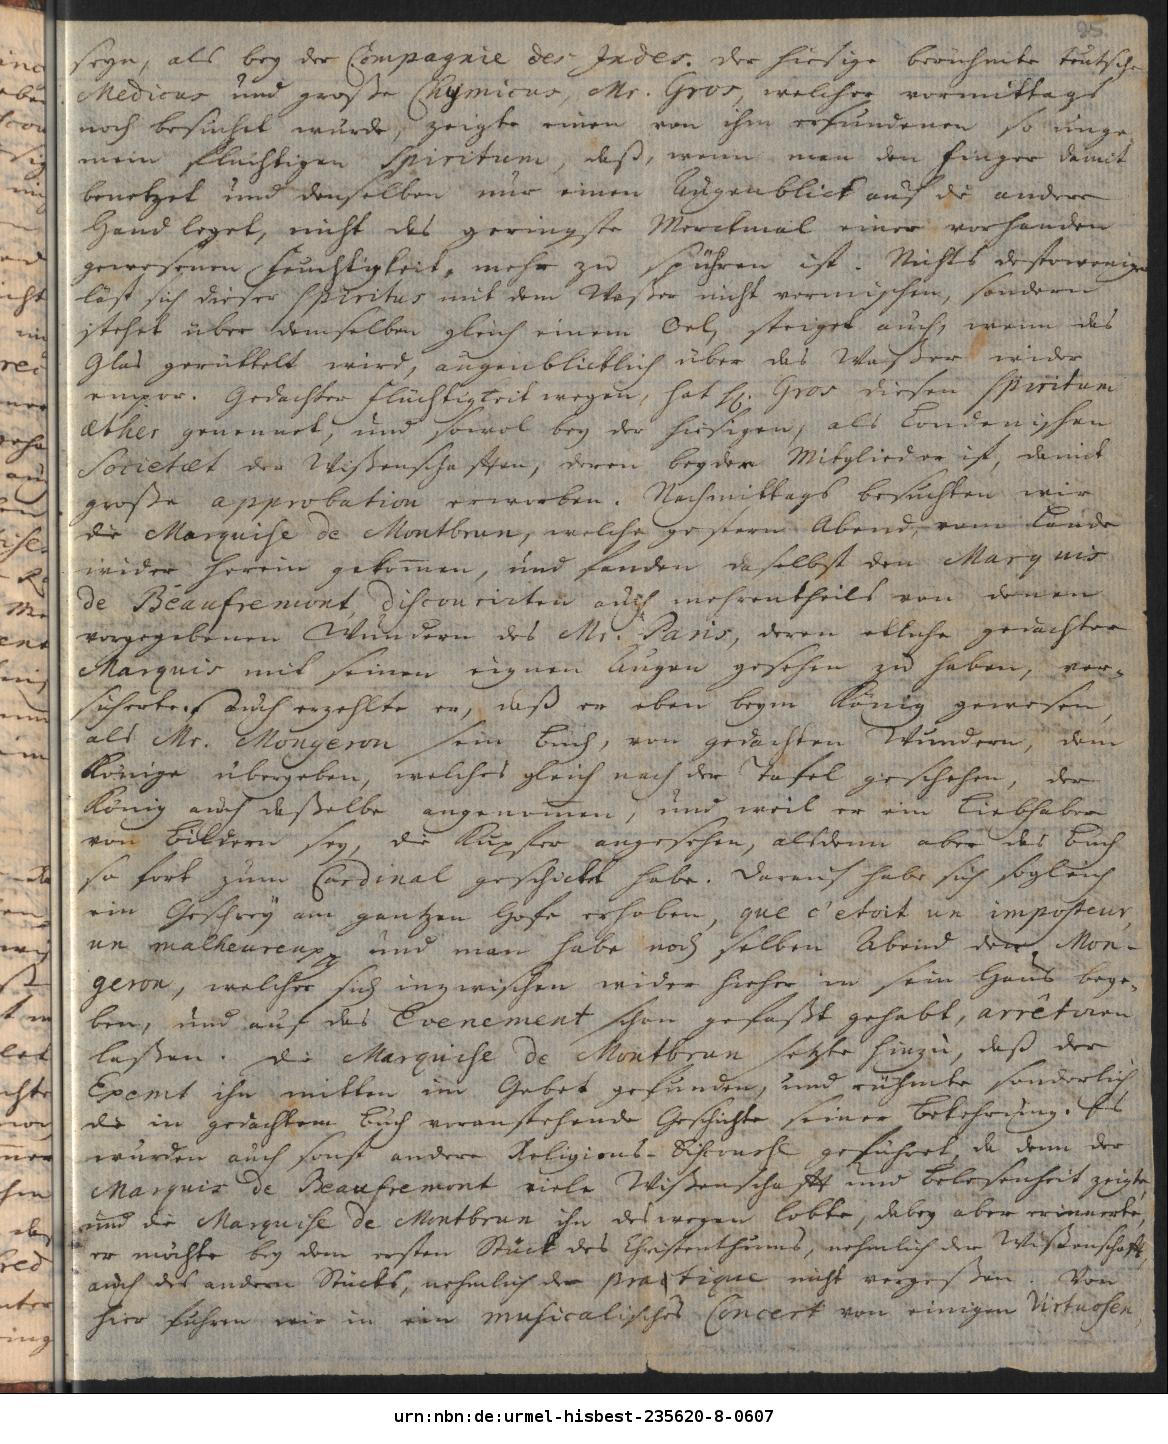 25.
seyn, als bey der Compagnie des Indes. Der hiesige berühmte teutsche
Medicus und große Chymicus, Mr. Gros, welcher vormittags
noch besuchet wurde, zeigte einen von ihm erfundenen so unge-
mein flüchtigen Spiritum, daß, wenn man den Finger damit
benetzet und denselben nur einen Augenblick auf die andere
Hand leget, nicht das geringste Merckmal einer vorhanden
gewesenen Feuchtigkeit, mehr zu spühren ist. Nichts destoweniger
läst sich dieser Spiritus mit dem Waßer nicht vermischen, sondern
stehet über demselben gleich einem Oel, steiget auch, wenn das
Glas gerüttelt wird, augenblicklich über das Waßer wider
empor. Gedachter Flüchtigkeit wegen, hat H. Gros diesen Spiritum
æther genennet, und sowol bey der hiesigen, als Londenischen
Societæt der Wißenschafften, deren beyder Mitglied er ist, damit
große approbation erworben. Nachmittags besuchten wir
die Marquise de Montbrun, welche gestern Abend, vom Lande
wider herein gekommen, und fanden daselbst den Marquis
de Beaufremont, discourirten auch mehrentheils von denen
vorgegebenen Wundern des Mr. Paris, deren etliche gedachter
Marquis mit seinen eignen Augen gesehen zu haben, ver-
sicherte. Auch erzehlte er, daß er eben beym König gewesen,
als Mr. Mongeron sein Buch, von gedachten Wundern, dem
Könige übergeben, welches gleich nach der Tafel geschehen, der
König auch daßelbe angenommen, und weil er ein Liebhaber
von Bildern sey, die Kupfer angesehen, alsdenn aber das Buch
so fort zum Cardinal geschickt habe. Darauf habe sich sogleich
ein Geschrey am gantzen Hofe erhoben, que c'etoit un imposteur,
un malheureux, und man habe noch selben Abend den Mon-
geron, welcher sich inzwischen wider hieher in sein Haus bege-
ben, und auf das Evenement schon gefaßt gehabt, arrêtiren
laßen. Die Marquise de Montbrun setzte hinzu, daß der
Exemt ihn mitten im Gebet gefunden, und rühmte sonderlich
die in gedachtem Buch voranstehende Geschichte seiner Bekehrung. Es
wurden auch sonst andere Religions-Discourse geführet, da denn der
Marquis de Beaufremont viele Wißenschafft und Belesenheit zeigte,
und die Marquise de Montbrun ihn deswegen lobte, dabey aber erinnerte,
er möchte bey dem ersten Stück des Christenthums, nehmlich der Wißenschafft,
auch des andern Stücks, nehmlich der practique nicht vergeßen. Von
hier fuhren wir in ein musicalisches Concert von einigen Virtuosen,
urn:nbn:de:urmel-hisbest-235620-8-0607